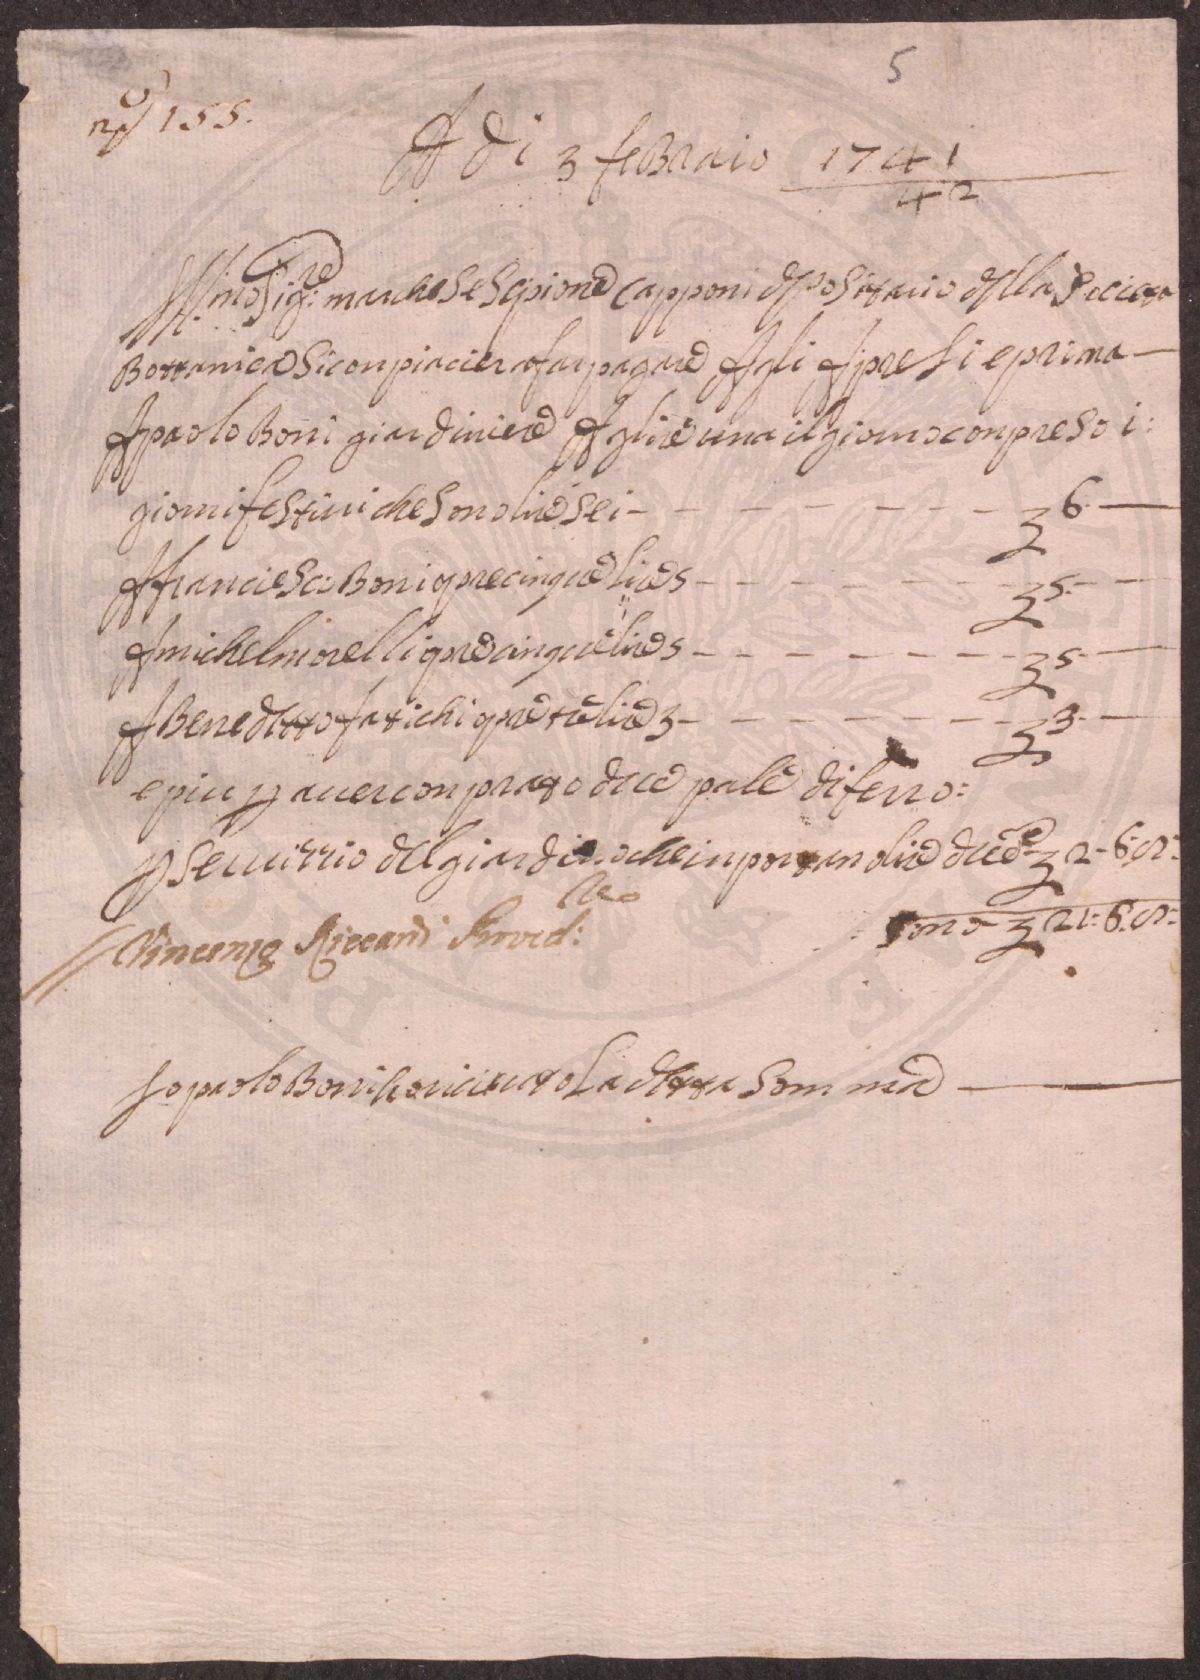 5
nº 155.
A di 3 feBraio 1741
42
Ill.mo Sig:re marchese Scpione Capponi depositario della Sociota
Bottanica Si conpiaciera far pagare Agli Apresi e prima
A paolo Boni giardiniere A lire una il giorno conpreso i:
giorni festiui che Son lire sei - - - - 6
A franciesco Boni opre cinque lire 5 - - - - 5
A michel morelli opre cinque lire 5 - - - - 5
A Benedetto fatichi opre tre lire 3 - - - - 3
e piu p auer conprato due pale di ferro:
p Seruizio del giardino che inportan lire due e 2-6:8:
Vincenzo Riccardi Proved:re
Sono 21:6:8:
Io paolo Boni ho riceuuto La detta Somma